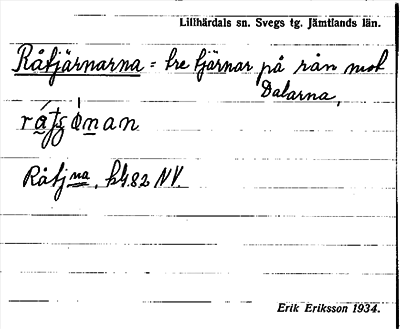 Lillhärdals sn. Svegs tg. Jämtlands län.
Råtjärnarna = tre tjärnar på rån mot
Dalarna,
Råtj na, k 482 NV.
Erik Eriksson 1934.